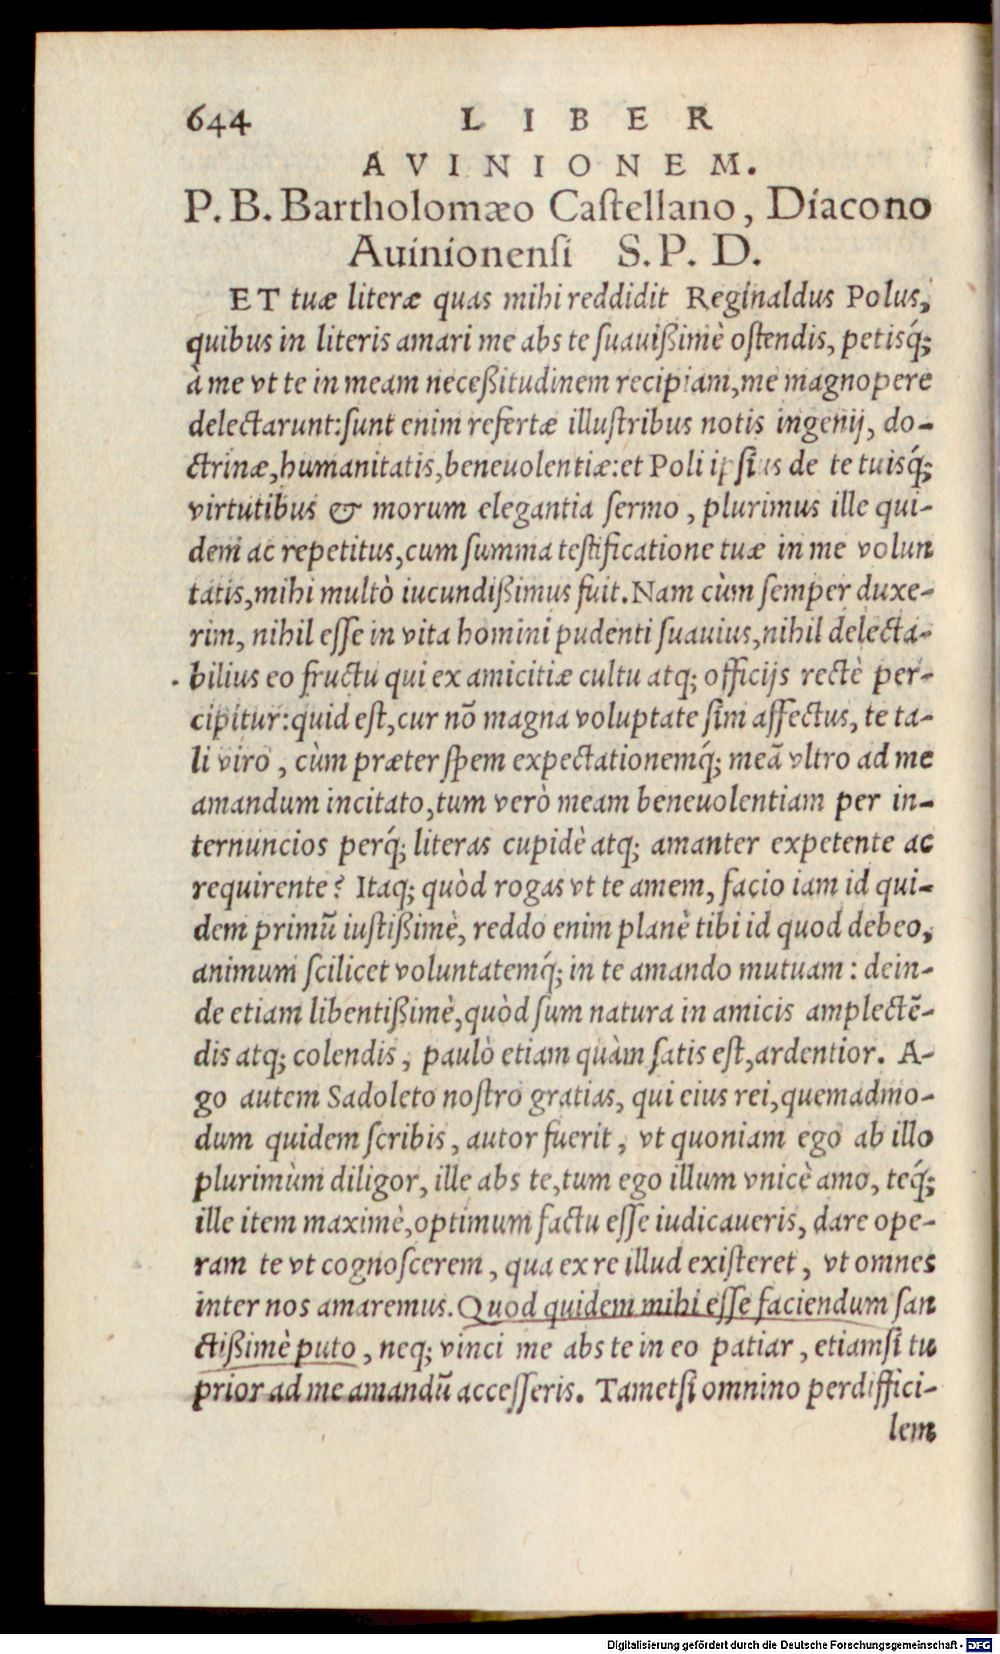 644 LIBER
AVINIONEM.
P. B. Bartholomæo Caſtellano, Diacono
Auinionenſi S. P. D.
ET tuæ literæ quas mihi reddidit Reginaldus Polus,
quibus in literis amari me abs te ſuauißimè oſtendis, petisq́;
à me vt te in meam neceßitudinem recipiam, me magnopere
delectarunt: ſunt enim refertæ illuſtribus notis ingenij, do-
ctrinæ, humanitatis, beneuolentiæ: et Poli ipſius de te tuisq́;
virtutibus & morum elegantia ſermo, plurimus ille qui-
dem ac repetitus, cum ſumma teſtificatione tuæ in me volun
tatis, mihi multò iucundißimus fuit. Nam cùm ſemper duxe-
rim, nihil eſſe in vita homini pudenti ſuauius, nihil delecta-
bilius eo fructu qui ex amicitiæ cultu atq; officijs rectè per-
cipitur: quid eſt, cur nō magna voluptate ſim affectus, te ta-
li viro, cùm præter ſpem expectationemq́; meā vltro ad me
amandum incitato, tum verò meam beneuolentiam per in-
ternuncios perq́; literas cupidè atq; amanter expetente ac
requirente? Itaq; quòd rogas vt te amem, facio iam id qui-
dem primū iuſtißimè, reddo enim planè tibi id quod debeo,
animum ſcilicet voluntatemq́; in te amando mutuam: dein-
de etiam libentißimè, quòd ſum natura in amicis amplectē-
dis atq; colendis, paulò etiam quàm ſatis eſt, ardentior. A-
go autem Sadoleto noſtro gratias, qui eius rei, quemadmo-
dum quidem ſcribis, autor fuerit, vt quoniam ego ab illo
plurimùm diligor, ille abs te, tum ego illum vnicè amo, teq́;
ille item maximè, optimum factu eſſe iudicaueris, dare ope-
ram te vt cognoſcerem, qua ex re illud exiſteret, vt omnes
inter nos amaremus. Quod quidem mihi eſſe faciendum ſan
ctißimè puto, neq; vinci me abs te in eo patiar, etiamſi tu
prior ad me amandū acceſſeris. Tametſi omnino perdiffici-
lem
Digitalisierung gefördert durch die Deutsche Forschungsgemeinschaft - DFG